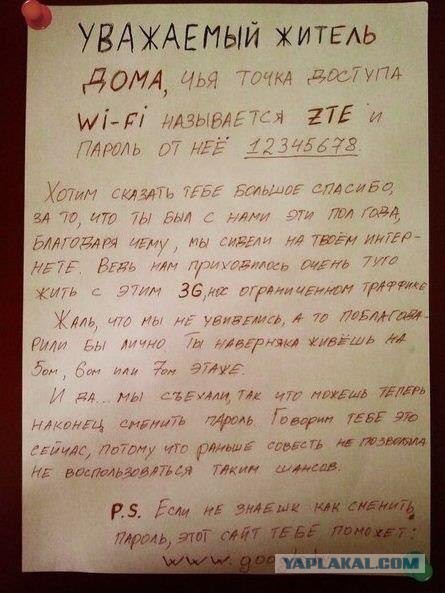 УВАЖАЕМЫЙ ЖИТЕЛЬ
ДОМА, ЧЬЯ ТОЧКА ДОСТУПА
Wi-Fi НАЗЫВАЕТСЯ ZTE И
ПАРОЛЬ ОТ НЕЁ 12345678.
ХОТИМ СКАЗАТЬ ТЕБЕ БОЛЬШОЕ СПАСИБО,
ЗА ТО, ЧТО ТЫ БЫЛ С НАМИ ЭТИ ПОЛ ГОДА,
БЛАГОДАРЯ ЧЕМУ, МЫ СИДЕЛИ НА ТВОЁМ ИНТЕР-
НЕТЕ. ВЕДЬ НАМ ПРИХОДИЛОСЬ ОЧЕНЬ ТУГО
ЖИТЬ С ЭТИМ 3G, ОГРАНИЧЕННОМ ТРАФФИКЕ
ЖАЛЬ, ЧТО МЫ НЕ УВИДЕЛИСЬ, А ТО ПОБЛАГОДА-
РИЛИ БЫ ЛИЧНО. ТЫ НАВЕРНЯКА ЖИВЁШЬ НА
5ОМ, 6ОМ ИЛИ 7ОМ ЭТАЖЕ.
И ДА... МЫ СЪЕХАЛИ, ТАК ЧТО МОЖЕШЬ ТЕПЕРЬ
НАКОНЕЦ СМЕНИТЬ ПАРОЛЬ. ГОВОРИМ ТЕБЕ ЭТО
СЕЙЧАС, ПОТОМУ ЧТО РАНЬШЕ СОВЕСТЬ НЕ ПОЗВОЛЯЛА
НЕ ВОСПОЛЬЗОВАТЬСЯ ТАКИМ ШАНСОМ.
P.S. ЕСЛИ НЕ ЗНАЕШЬ КАК СМЕНИТЬ
ПАРОЛЬ, ЭТОТ САЙТ ТЕБЕ ПОМОЖЕТ:
YAPLAKAL.COM